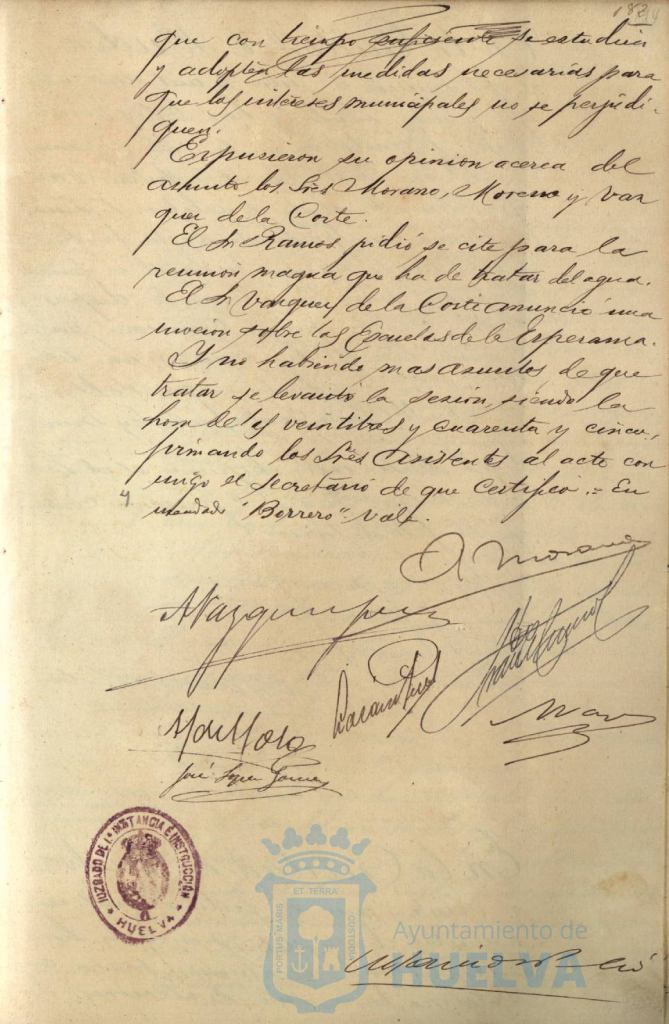 que con tiempo suficiente se estudien
y adopten las medidas necesarias para
que los intereses municipales no se perjudi-
quen.
Expusieron su opinion acerca del
asunto los Sres Morano, Moreno y Vaz
quez de la Corte.
El Sr Ramos pidió se cite para la
reunión magna que ha de tratar del agua.
El Sr Vazquez de la Corte anunció una
mocion sobre las Escuelas de la Esperanza.
Y no habiendo mas asuntos de que
tratar se levantó la sesión, siendo la
hora de las veintitres y cuarenta y cinco,
firmando los Sres asistentes al acto con
migo el secretario de que certifico.= En
mendado "Borrero" - vale.
A Morano
José Lopez Gomez
JUZGADO DE 1ª INSTANCIA E INSTRUCCIÓN
HUELVA
PORTUS MARIS ET TERRÆ CUSTODIA
Ayuntamiento de
HUELVA